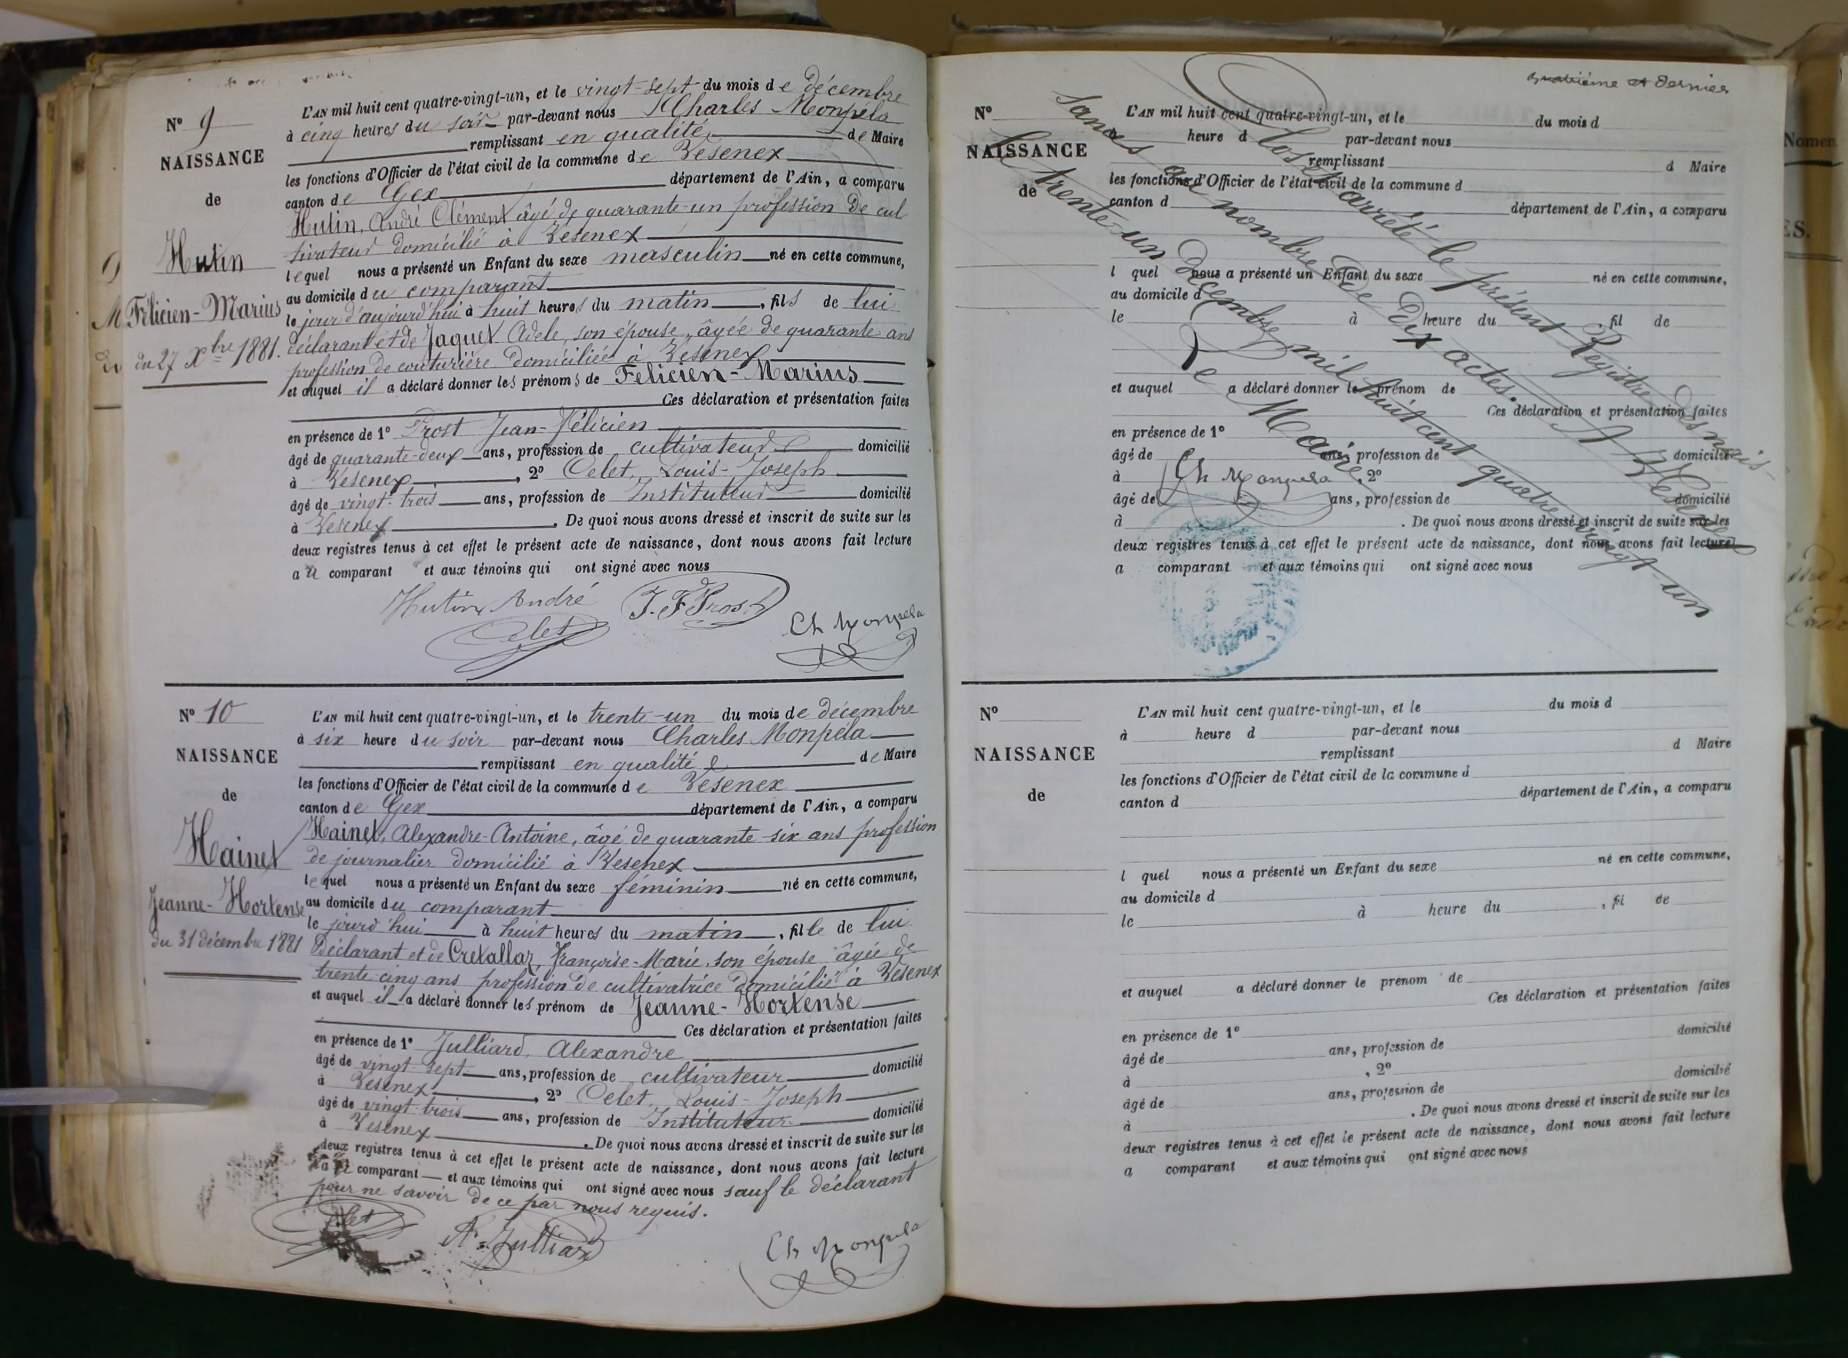 Nº 9
NAISSANCE
de
Hutin
Félicien-Marius
du 27 Xbre 1881.
L'AN mil huit cent quatre-vingt-un, et le vingt-sept du mois de décembre
à cinq heures du soir par-devant nous Charles Monpéla
remplissant en qualité de Maire
les fonctions d'Officier de l'état civil de la commune de Vésenex
canton de Gex département de l'Ain, a comparu
Hutin, André Clément âgé de quarante-un profession de cul
tivateur domicilié à Vésenex
lequel nous a présenté un Enfant du sexe masculin né en cette commune,
au domicile du comparant
le jour d'aujourd'hui à huit heures du matin, fils de lui
déclarant et de Jaquet Adele, son épouse, âgée de quarante ans
profession de couturière domiciliée à Vésenex
et auquel il a déclaré donner les prénoms de Félicien-Marius
Ces déclaration et présentation faites
en présence de 1º Prost Jean-Félicien
âgé de quarante-deux ans, profession de cultivateur domicilié
à Vésenex, 2º Celet, Louis-Joseph
âgé de vingt-trois ans, profession de Instituteur domicilié
à Vesenex. De quoi nous avons dressé et inscrit de suite sur les
deux registres tenus à cet effet le présent acte de naissance, dont nous avons fait lecture
au comparant et aux témoins qui ont signé avec nous
Hutin André J. F. Prost
Celet Ch Monpela
Nº 10
NAISSANCE
de
Hainet
Jeanne-Hortense
du 31 décembre 1881
L'AN mil huit cent quatre-vingt-un, et le trente-un du mois de décembre
à six heure du soir par-devant nous Charles Monpéla
remplissant en qualité de Maire
les fonctions d'Officier de l'état civil de la commune de Vésenex
canton de Gex département de l'Ain, a comparu
Hainet, Alexandre-Antoine, âgé de quarante-six ans profession
de journalier domicilié à Vesenex
lequel nous a présenté un Enfant du sexe féminin né en cette commune,
au domicile du comparant
le jourd'hui à huit heures du matin, fille de lui
Déclarant et de Cretallaz, Françoise-Marie, son épouse âgée de
trente cinq ans profession de cultivatrice domicilié à Vésenex
et auquel il a déclaré donner les prénom de Jeanne-Hortense
Ces déclaration et présentation faites
en présence de 1º Julliard, Alexandre
âgé de vingt sept ans, profession de cultivateur domicilié
à Vesenex, 2º Celet, Louis-Joseph
âgé de vingt-trois ans, profession de Instituteur domicilié
à Vésenex. De quoi nous avons dressé et inscrit de suite sur les
deux registres tenus à cet effet le présent acte de naissance, dont nous avons fait lecture
au comparant et aux témoins qui ont signé avec nous sauf le déclarant
pour ne savoir de ce par nous requis.
Celet A. Julliard Ch Monpela
quatrième et dernier
Nº
NAISSANCE
de
L'AN mil huit cent quatre-vingt-un, et le du mois d
heure d par-devant nous
remplissant d Maire
les fonctions d'Officier de l'état civil de la commune d
canton d département de l'Ain, a comparu
l quel nous a présenté un Enfant du sexe né en cette commune,
au domicile d
le à heure du , fil de
et auquel a déclaré donner le prénom de
Ces déclaration et présentation faites
en présence de 1º
âgé de ans, profession de domicilié
à , 2º
âgé de ans, profession de domicilié
à . De quoi nous avons dressé et inscrit de suite sur les
deux registres tenus à cet effet le présent acte de naissance, dont nous avons fait lecture
a comparant et aux témoins qui ont signé avec nous
Clos et arrêté le présent Registre des nais-
sances au nombre de dix actes. A Vésenex
le trente-un Décembre mil huit cent quatre-vingt-un
Le Maire
Ch Monpela
Nº
NAISSANCE
de
L'AN mil huit cent quatre-vingt-un, et le du mois d
à heure d par-devant nous
remplissant d Maire
les fonctions d'Officier de l'état civil de la commune d
canton d département de l'Ain, a comparu
l quel nous a présenté un Enfant du sexe né en cette commune,
au domicile d
le à heure du , fil de
et auquel a déclaré donner le prenom de
Ces déclaration et présentation faites
en présence de 1º
âgé de ans, profession de domicilié
à , 2º
âgé de ans, profession de domicilié
à . De quoi nous avons dressé et inscrit de suite sur les
deux registres tenus à cet effet le présent acte de naissance, dont nous avons fait lecture
a comparant et aux témoins qui ont signé avec nous
Nomen
ES.